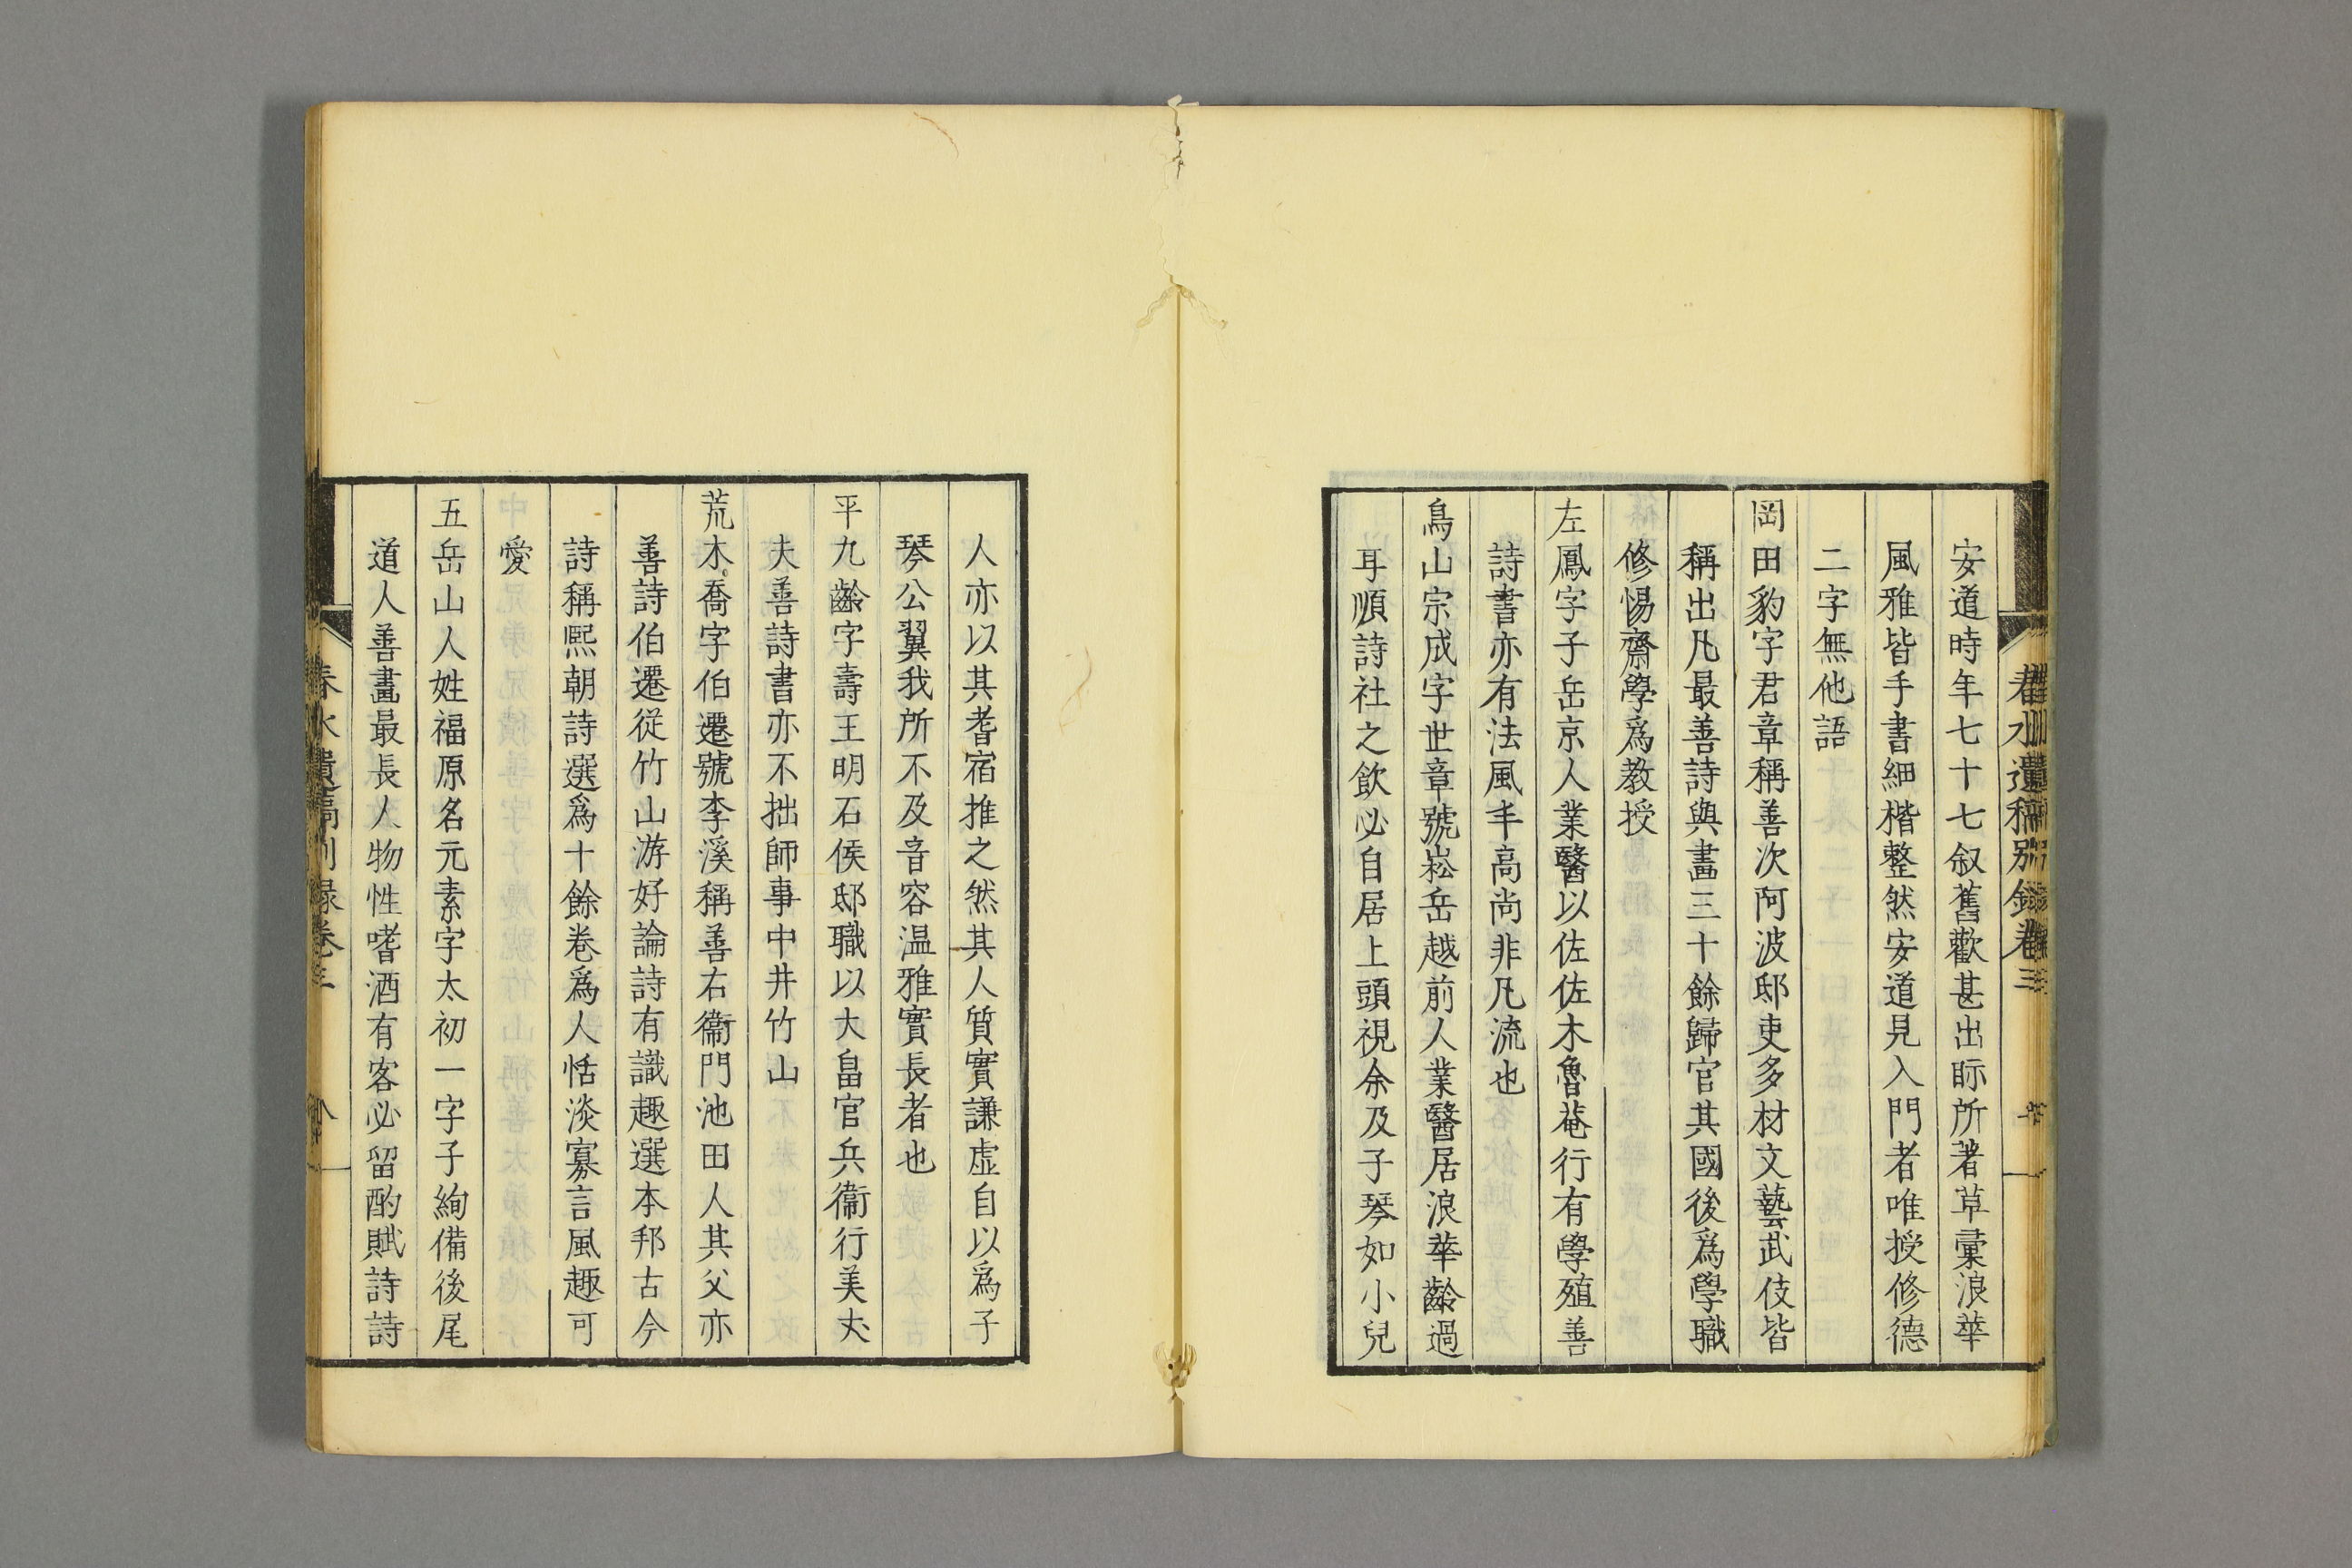 安道時年七十七叙舊歡甚出眎所著草稾浪華
風雅皆手書細楷整然安道見入門者唯授修德
二字無他語
岡田豹字君章稱善次阿波邸吏多材文藝武伎皆
稱出凡最善詩與畫三十餘歸官其國後爲學職
修惕齋學爲教授
左鳳字子岳京人業醫以佐佐木魯菴行有學殖善
詩書亦有法風丰高尚非凡流也
鳥山宗成字世章號崧岳越前人業醫居浪華齡過
耳順詩社之飲必自居上頭視余及子琴如小兒
人亦以其耆宿推之然其人質實謙虛自以爲子
琴公翼我所不及音容温雅實長者也
平九齡字壽王明石侯邸職以大畠官兵衞行美丈
夫善詩書亦不拙師事中井竹山
荒木喬字伯遷號李溪稱善右衞門池田人其父亦
善詩伯遷從竹山游好論詩有識趣選本邦古今
詩稱熙朝詩選爲十餘卷爲人恬淡寡言風趣可
愛
五岳山人姓福原名元素字太初一字子絢備後尾
道人善畫最長人物性嗜酒有客必留酌賦詩詩
春水遺稿別錄卷三
春水遺稿別録卷三